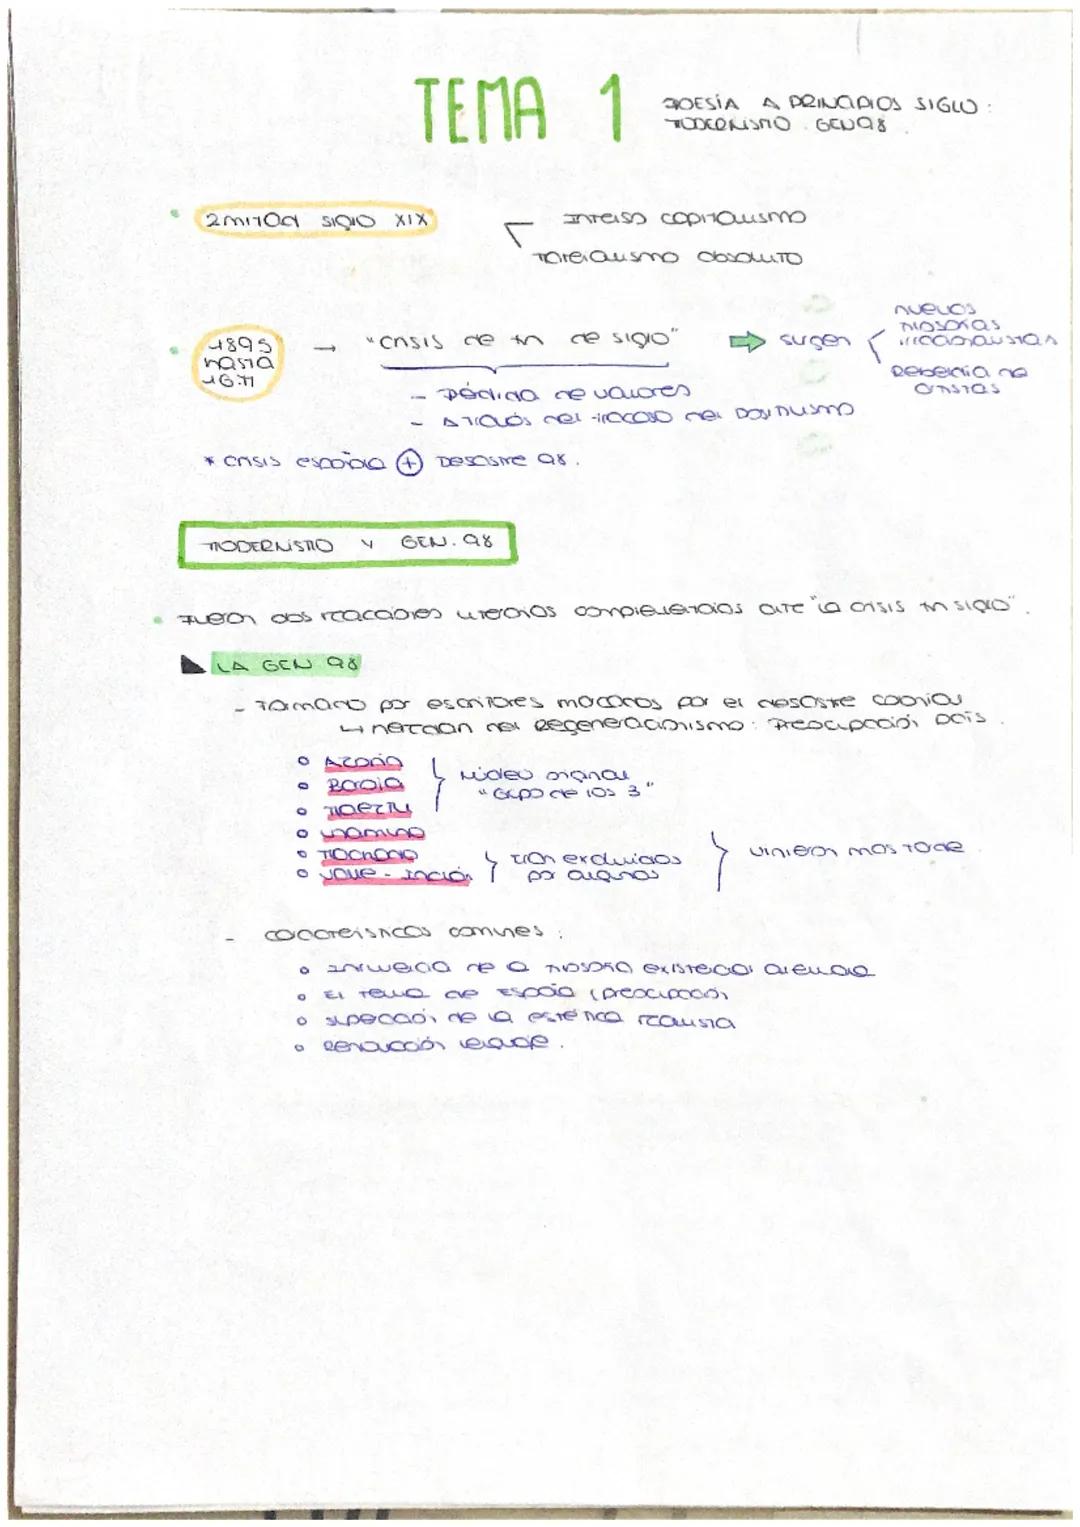 TEMA 1
POESÍA A PRINCIPIOS SIGLO:
MODERNISMO. GEN 98.
2 mitad siglo XIX
Intenso capitalismo
Materialismo absoluto
1895
hasta
→ "crisis de fin de siglo"
⇒ surgen
nuevos
filosofías
irracionalistas
Rebeldía de
artistas
- Pérdida de valores
- A través del fracaso del Positivismo
* crisis española + Desastre 98.
MODERNISMO Y GEN. 98
Fueron dos reacciones literarias complementarias ante "la crisis fin siglo".
LA GEN 98
- Formado por escritores marcados por el desastre colonial
↳ heredan del Regeneracionismo: Preocupación país.
o Azorín
o Baroja
o Maeztu
Núcleo original
"Grupo de los 3"
o Unamuno
o Machado
o Valle-Inclán
eran excluidos
por algunos
vinieron más tarde
- características comunes:
o Influencia de la filosofía existencial alemana
o El tema de España (preocupación
o superación de la estética realista
o Renovación lenguaje.